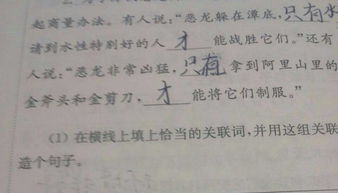 起商量办法。有人说:“恶龙躲在潭底,只有水
请到水性特别好的人 才 能战胜它们。”还有
人说:“恶龙非常凶猛,只有 拿到阿里山里的
金斧头和金剪刀, 才 能将它们制服。”
(1) 在横线上填上恰当的关联词,并用这组关联
造个句子。